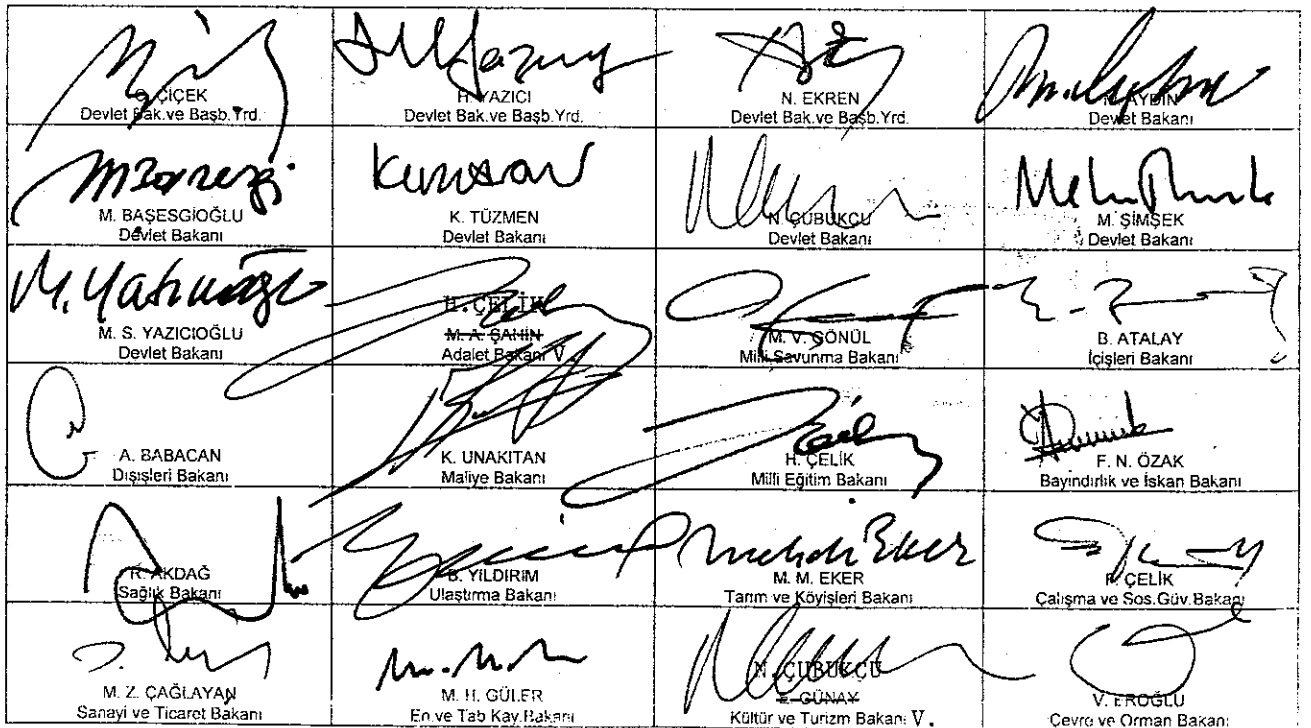 C. ÇİÇEK
Devlet Bak.ve Başb.Yrd.
H. YAZICI
Devlet Bak.ve Başb.Yrd.
N. EKREN
Devlet Bak.ve Başb.Yrd.
M. AYDIN
Devlet Bakanı
M. BAŞESGİOĞLU
Devlet Bakanı
K. TÜZMEN
Devlet Bakanı
N. ÇUBUKÇU
Devlet Bakanı
M. ŞİMŞEK
Devlet Bakanı
M. Yazıcıoğlu
M. S. YAZICIOĞLU
Devlet Bakanı
H. ÇELİK
M. A. ŞAHİN
Adalet Bakanı V.
M. V. GÖNÜL
Milli Savunma Bakanı
B. ATALAY
İçişleri Bakanı
A. BABACAN
Dışişleri Bakanı
K. UNAKITAN
Maliye Bakanı
H. ÇELİK
Milli Eğitim Bakanı
F. N. ÖZAK
Bayındırlık ve İskan Bakanı
R. AKDAĞ
Sağlık Bakanı
B. YILDIRIM
Ulaştırma Bakanı
Mehdi Eker
M. M. EKER
Tarım ve Köyişleri Bakanı
F. ÇELİK
Çalışma ve Sos.Güv.Bakanı
M. Z. ÇAĞLAYAN
Sanayi ve Ticaret Bakanı
M. H. GÜLER
En.ve Tab.Kay.Bakanı
N. ÇUBUKÇU
E. GÜNAY
Kültür ve Turizm Bakanı V.
V. EROĞLU
Çevre ve Orman Bakanı